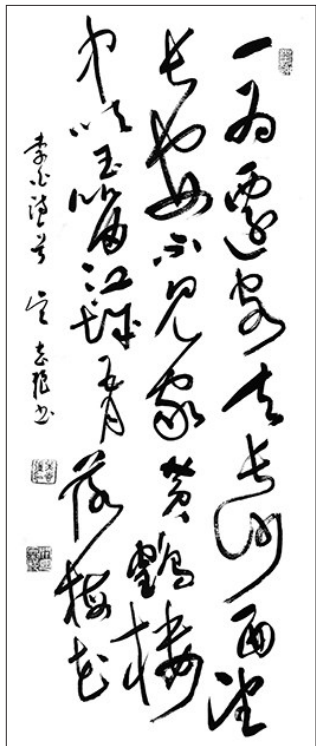 一為遷客去長沙西望
長安不見家黃鶴樓
中吹玉笛江城五月落梅花
李白詩首 志根書